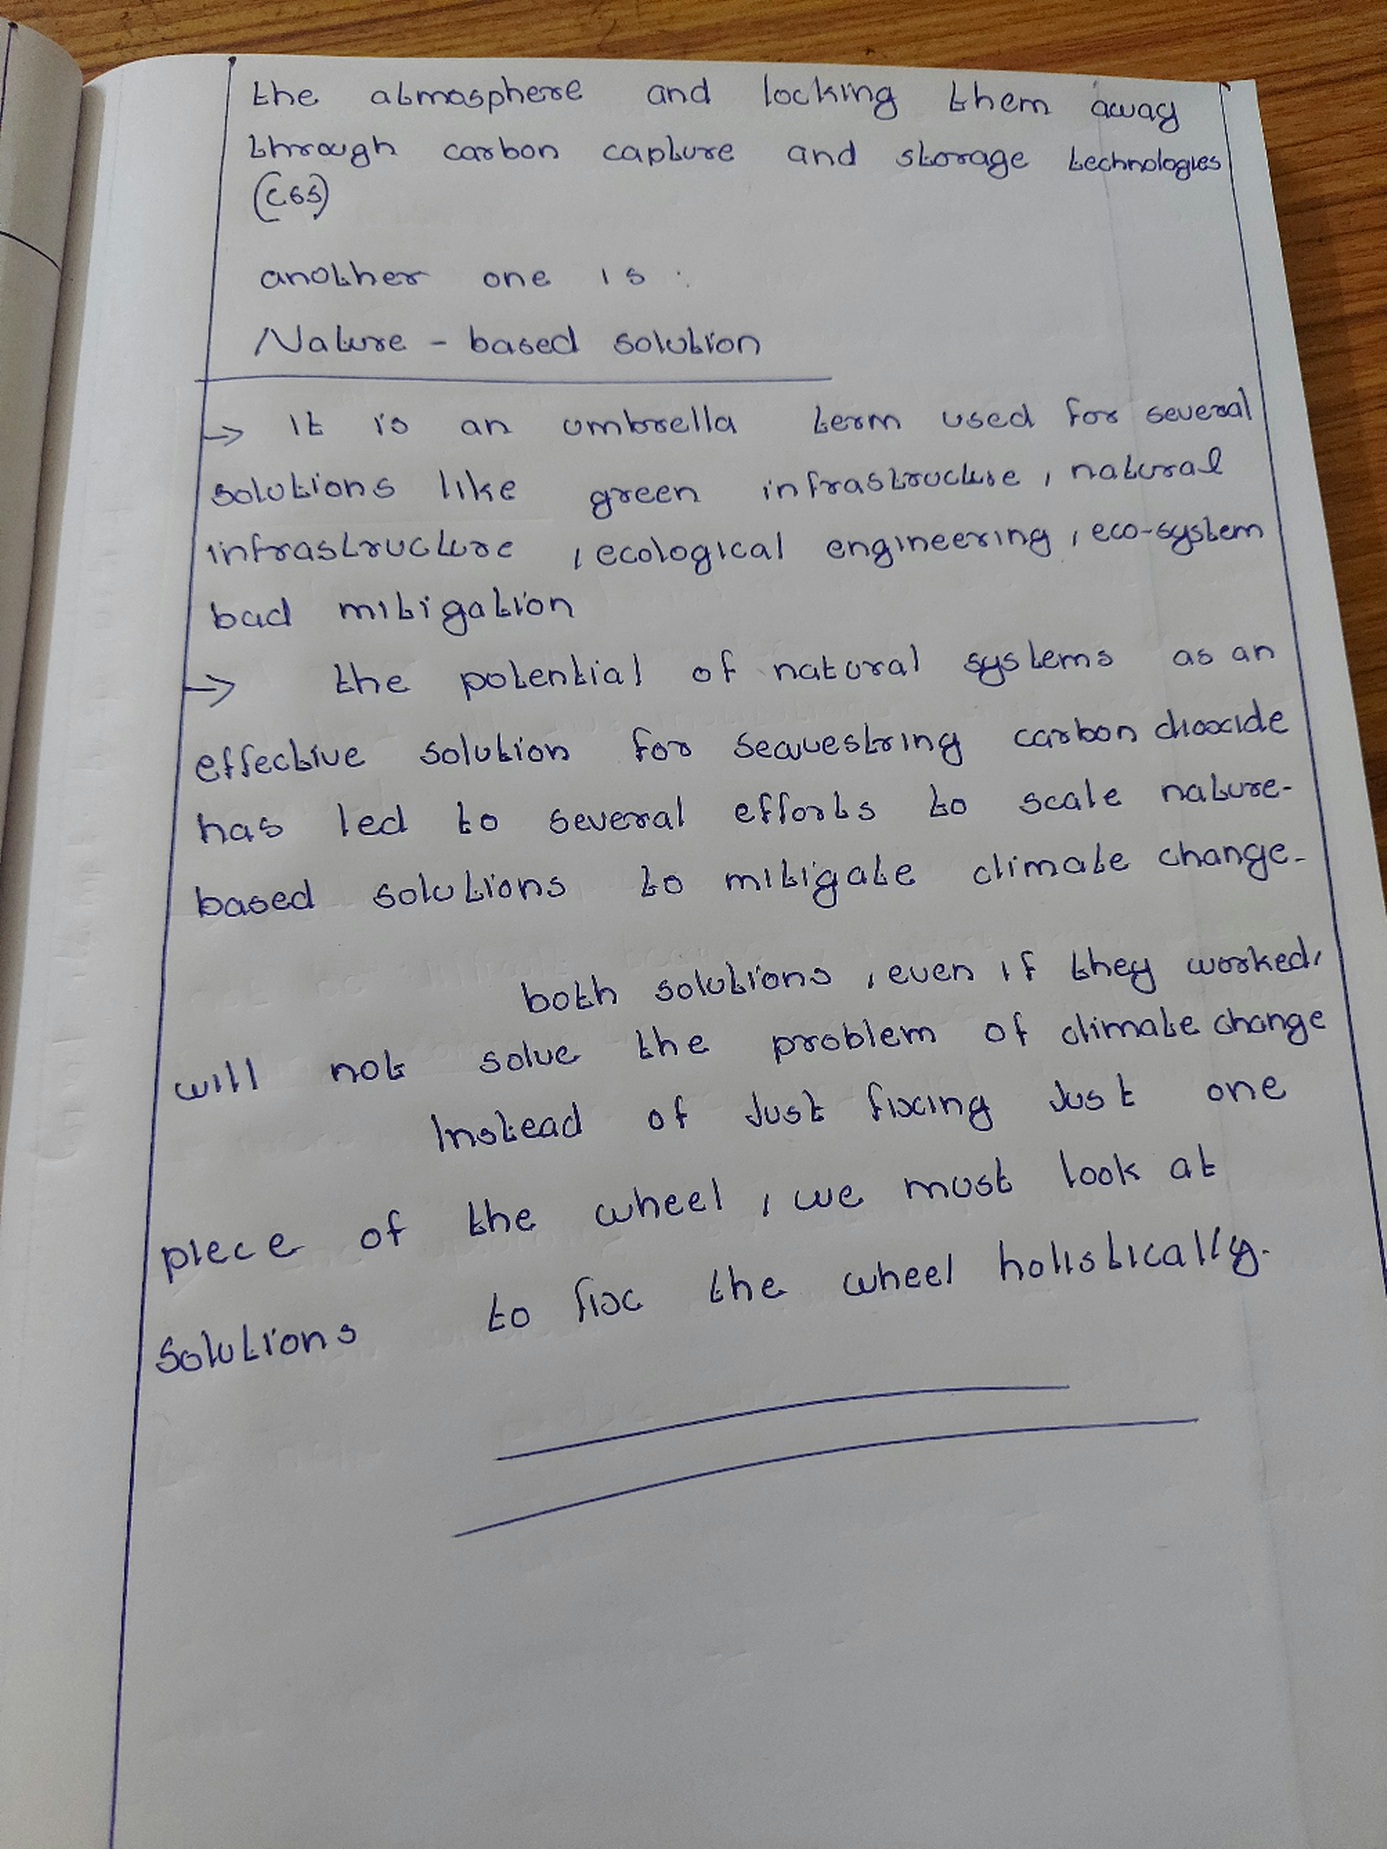 the atmosphere and locking them away
through carbon capture and storage technologies
(CGS)
another one is :
Nature - based solution
→ it is an umbrella term used for several
solutions like green infrastructure, natural
infrastructure, ecological engineering, eco-system
bad mitigation
→ the potential of natural systems as an
effective solution for sequestring carbon dioxide
has led to several efforts to scale nature-
based solutions to mitigate climate change.
both solutions, even if they worked,
will not solve the problem of climate change
Instead of Just fixing Just one
piece of the wheel, we must look at
solutions to fix the wheel holistically.